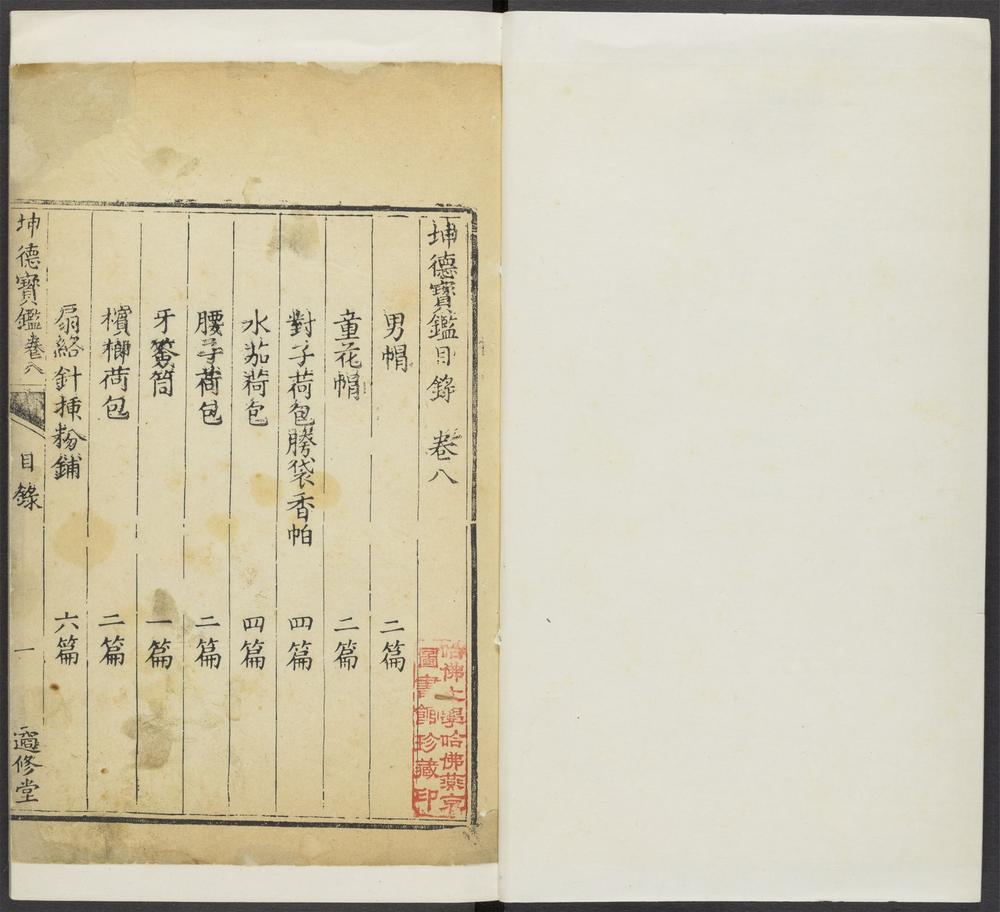 坤德寶鑑目錄 卷八
男帽 二篇
童花帽 二篇
對子荷包膀袋香帕 四篇
水茄荷包 四篇
腰子荷包 二篇
牙簽筒 一篇
檳榔荷包 二篇
扇絡針揷粉鋪 六篇
坤德寶鑑卷八 目錄 一 修堂
哈佛大學哈佛燕京
圖書館珍藏印